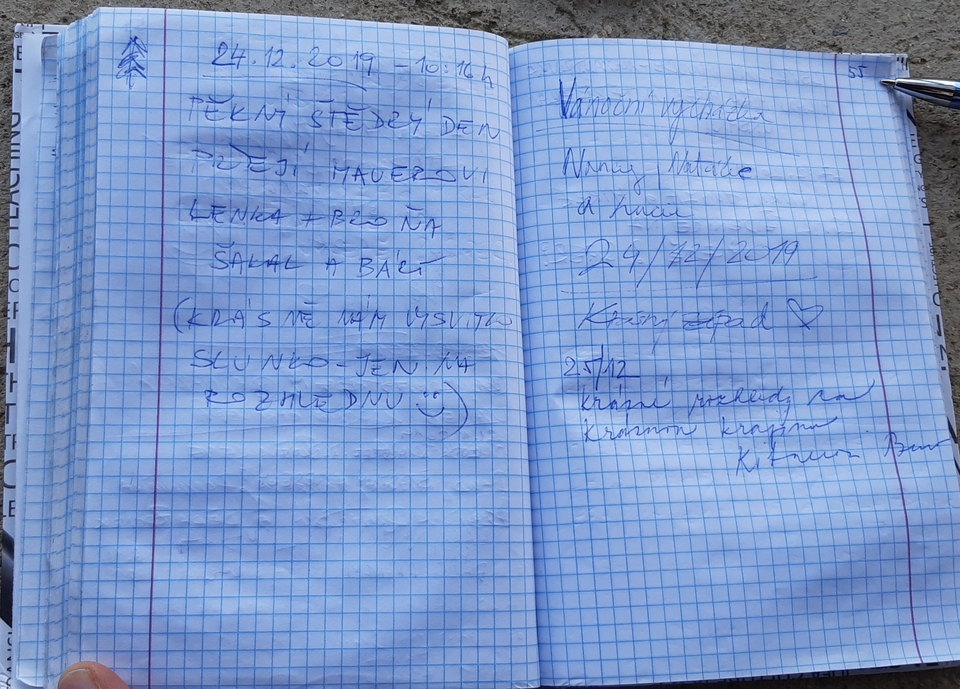 24.12.2019 - 10:16 h
PĚKNÝ ŠTĚDRÝ DEN
PŘEJÍ MAUEROVI
LENKA + BROŇA
ŠAKAL A BÁRT
(KRÁSNĚ NÁM VYSVITLO
SLUNKO - JEN NA
ROZHLEDNU :))
55
Vánoční vycházka
Nancy, Natálie
a
24/12/2019
Krásný západ ♡
25/12
Krásné pohledy na
krásnou krajinu